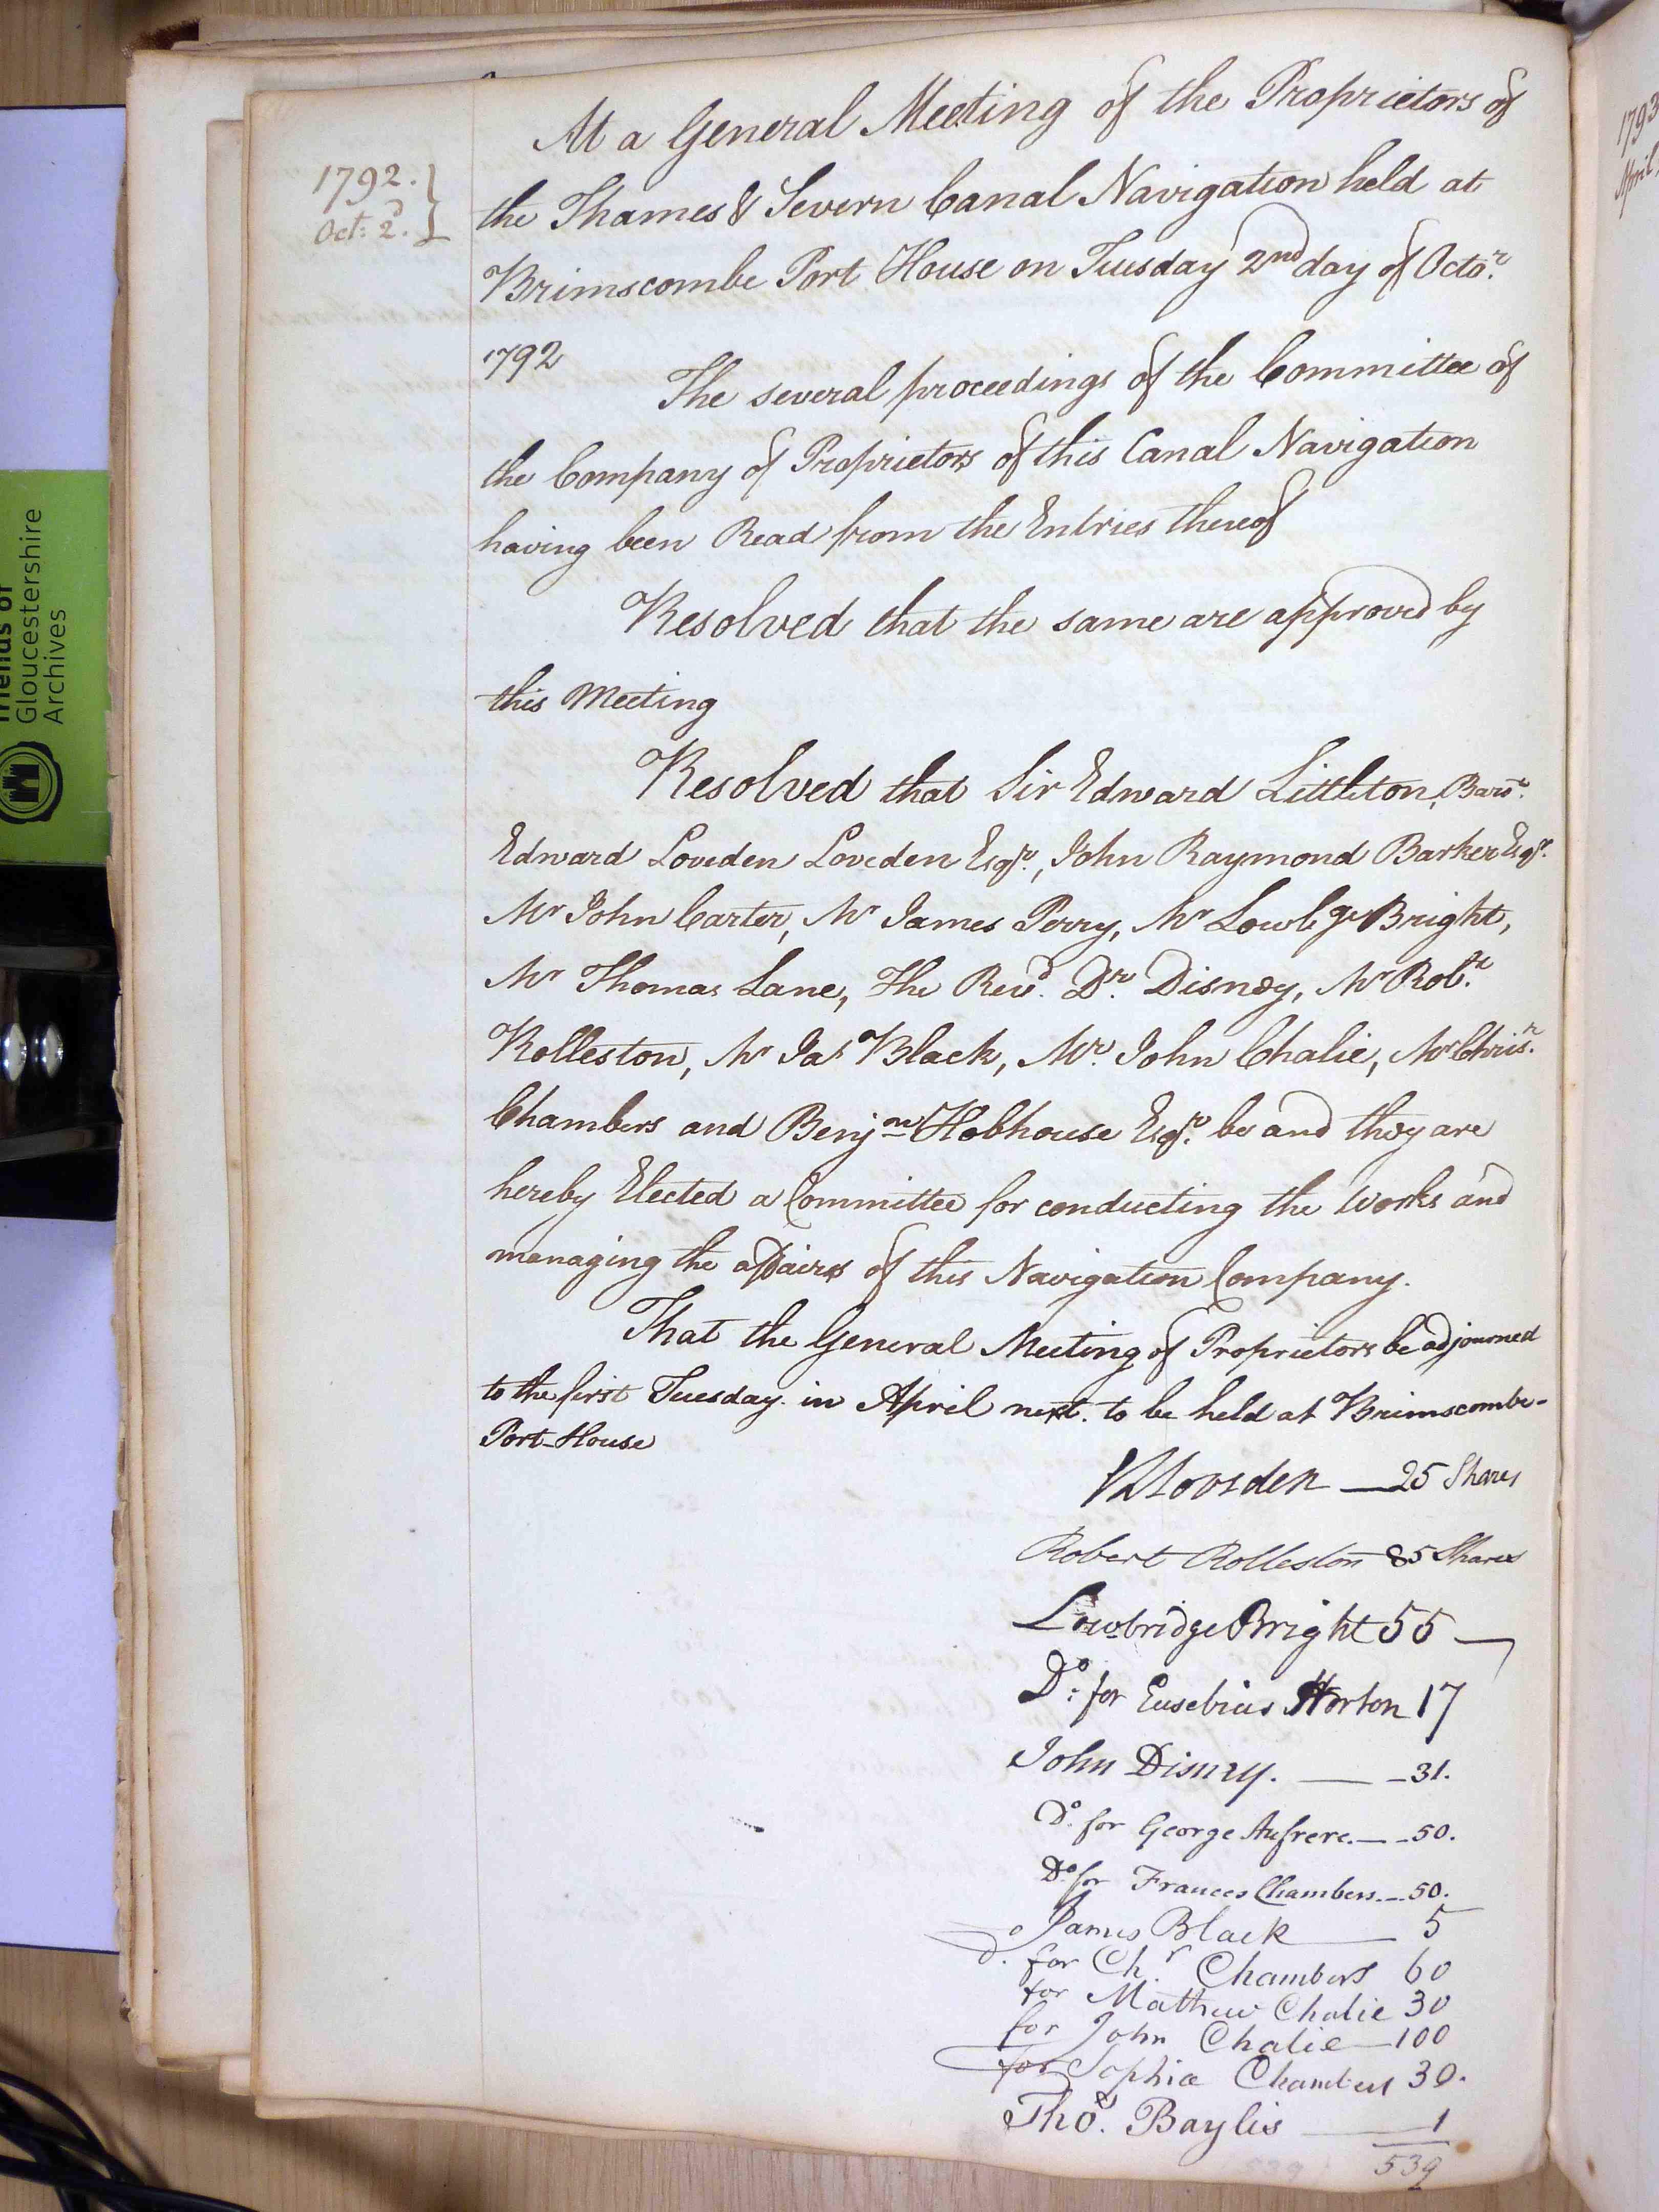 1792.
Oct: 2d.
At a General Meeting of the Proprietors of
the Thames & Severn Canal Navigation held at
Brimscombe Port House on Tuesday 2nd day of Octor.
1792
The several proceedings of the Committee of
the Company of Proprietors of this Canal Navigation
having been Read from the Entries thereof
Resolved that the same are approved by
this Meeting
Resolved that Sir Edward Littleton, Barot.
Edward Loveden Loveden Esqr., John Raymond Barker Esqr.
Mr John Carter, Mr James Perry, Mr Lowbge Bright,
Mr Thomas Lane, The Revd. Dr. Disney, Mr Robt.
Rolleston, Mr Jas Black, Mr. John Chalie, Mr Chrisr.
Chambers and Benjmn Hobhouse Esqr. be and they are
hereby Elected a Committee for conducting the Works and
managing the affairs of this Navigation Company.
That the General Meeting of Proprietors be adjourned
to the first Tuesday in April next. to be held at Brimscombe-
Port-House
Loveden — 25 Shares
Robert Rolleston 85 Shares
Lowbridge Bright 55 —
Do: for Eusebius Horton 17
John Disney. — — 31.
Do. for George Aufrere. — - 50.
Do for Frances Chambers. — 50.
James Black — 5
Do. for Chr. Chambers 60
for Mathew Chalie 30
for John Chalie — 100
for Sophia Chambers 30.
Thos. Baylis — 1
539
1793
April,
Friends of
Gloucestershire
Archives